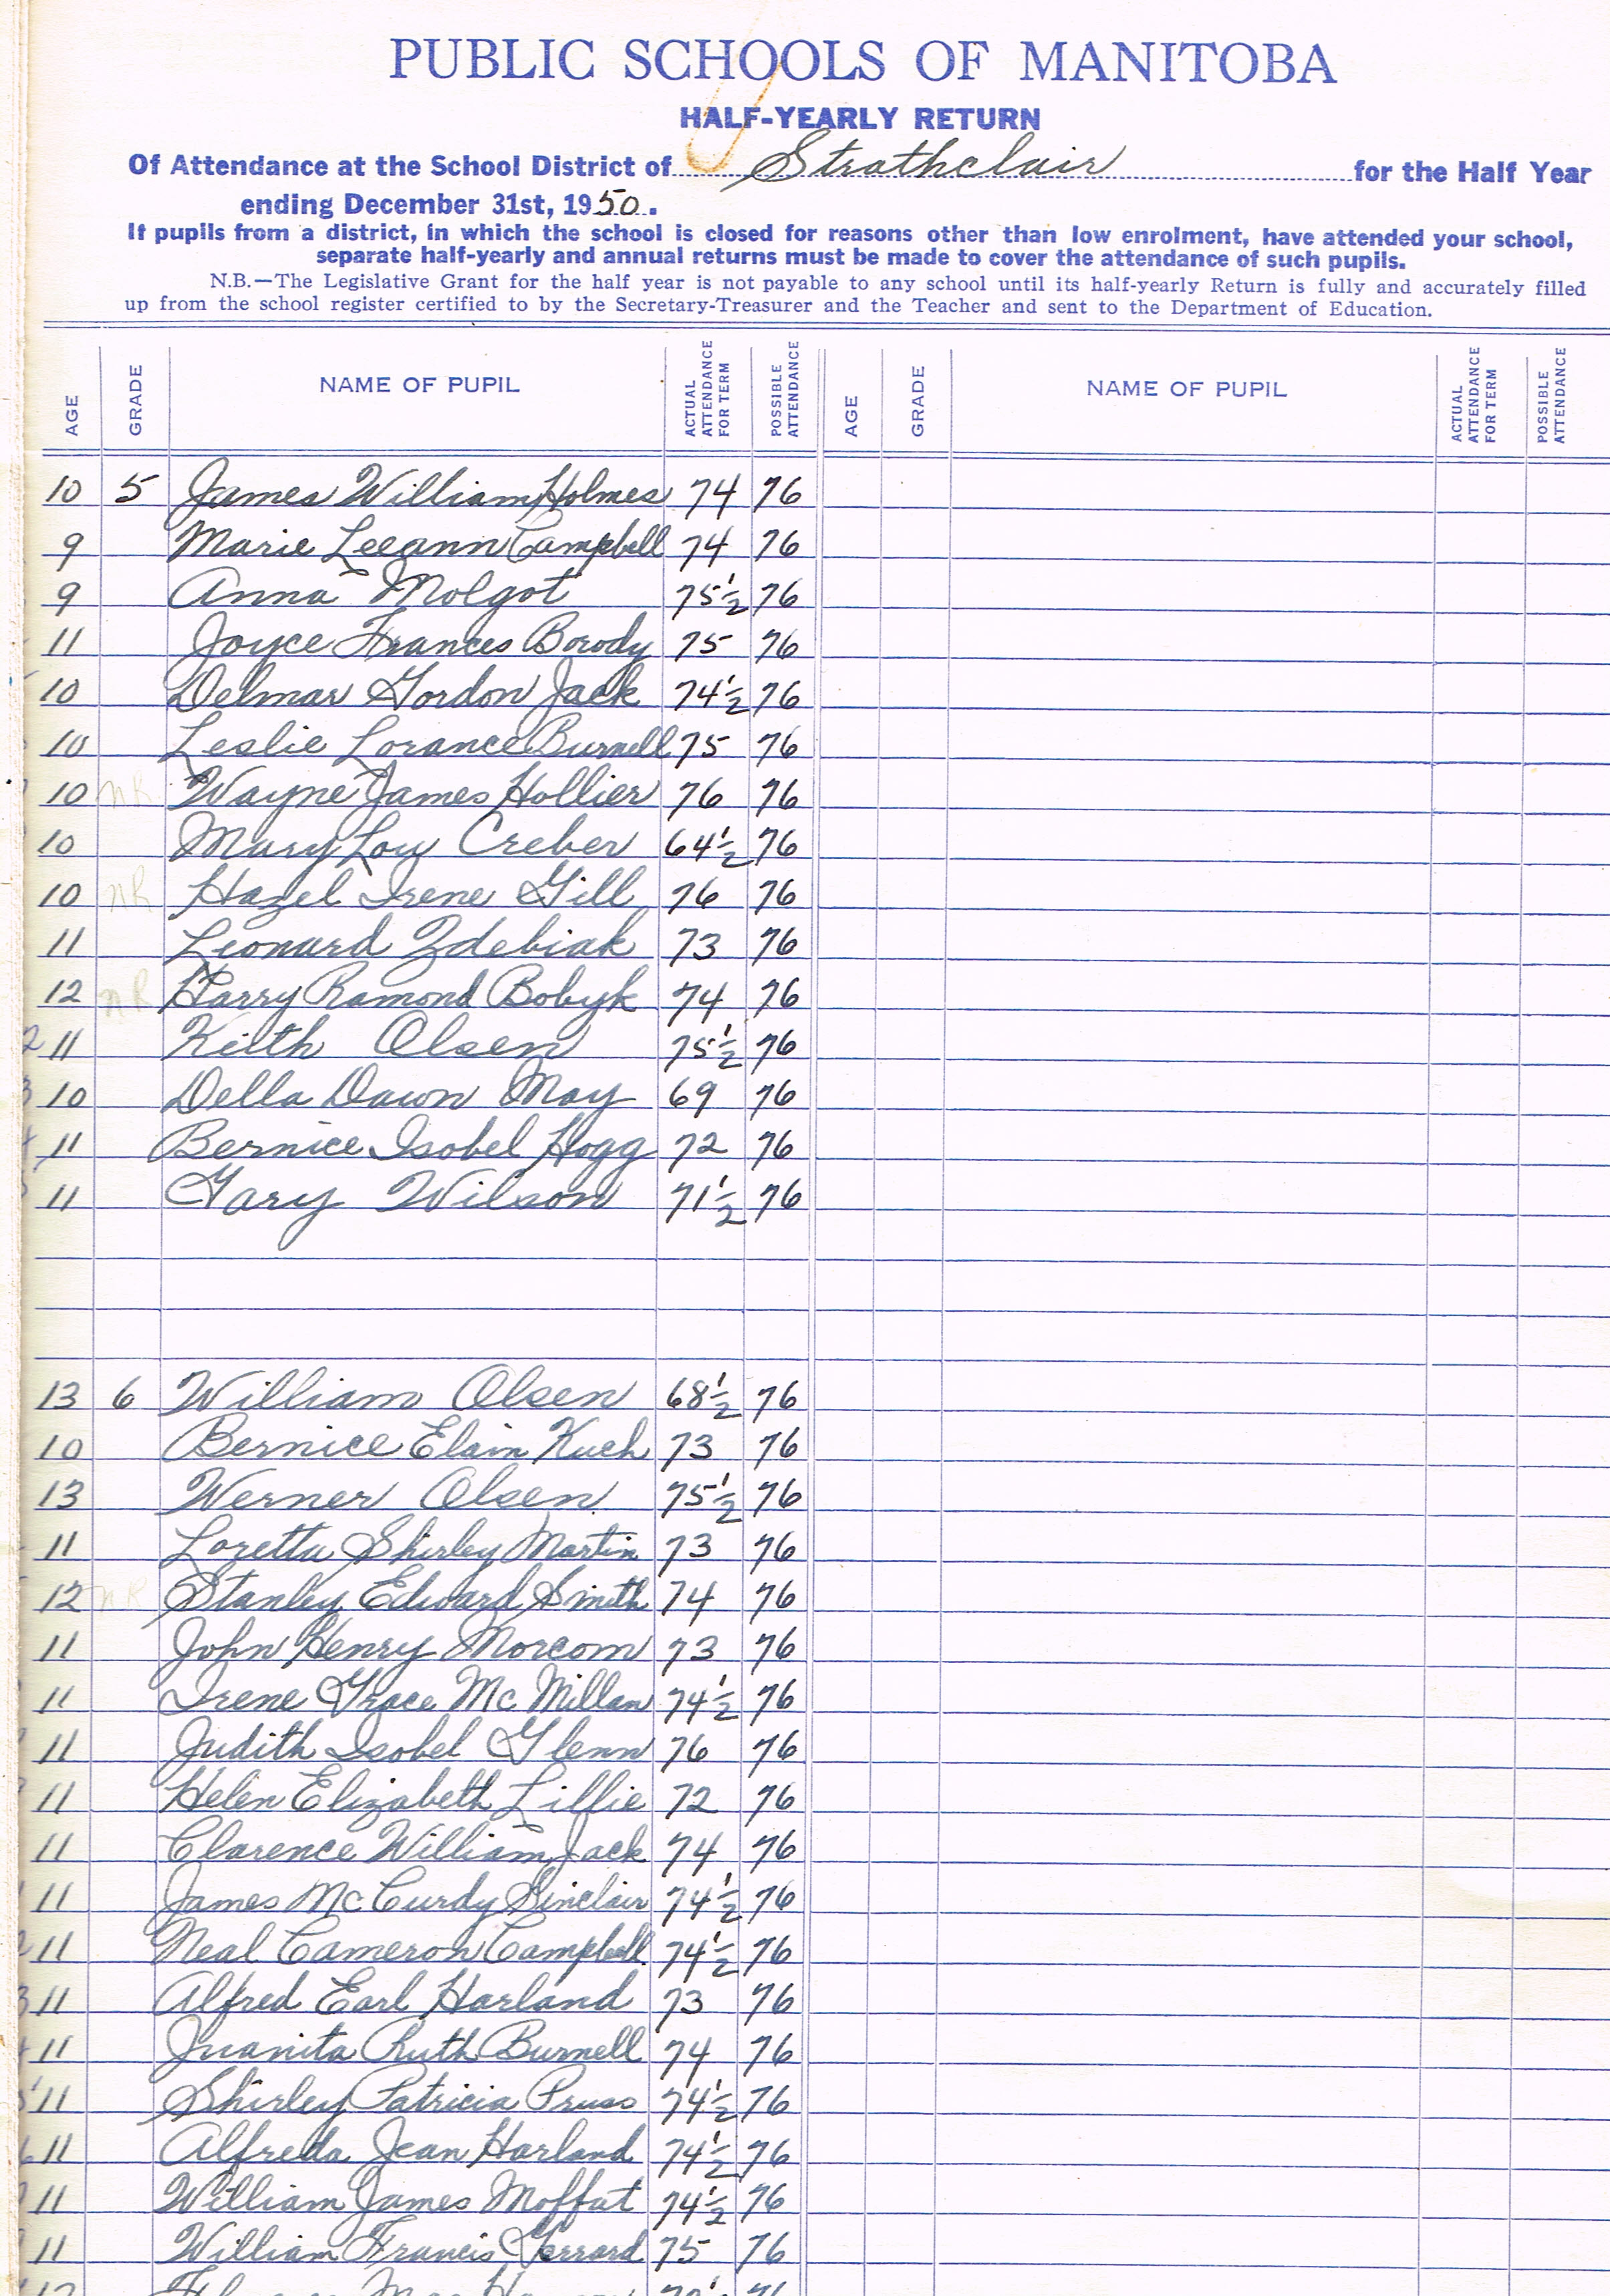 PUBLIC SCHOOLS OF MANITOBA
HALF-YEARLY RETURN
Of Attendance at the School District of Strathclair for the Half Year
ending December 31st, 1950.
If pupils from a district, in which the school is closed for reasons other than low enrolment, have attended your school,
separate half-yearly and annual returns must be made to cover the attendance of such pupils.
N.B.—The Legislative Grant for the half year is not payable to any school until its half-yearly Return is fully and accurately filled
up from the school register certified to by the Secretary-Treasurer and the Teacher and sent to the Department of Education.
AGE GRADE NAME OF PUPIL ACTUAL ATTENDANCE FOR TERM POSSIBLE ATTENDANCE AGE GRADE NAME OF PUPIL ACTUAL ATTENDANCE FOR TERM POSSIBLE ATTENDANCE
10 5 James William Holmes 74 76
9 Marie Leeann Campbell 74 76
9 Anna Molgot 75½ 76
11 Joyce Frances Borody 75 76
10 Delmar Gordon Jack 74½ 76
10 Leslie Lorance Burnell 75 76
10 NR Wayne James Hollier 76 76
10 Mary Lou Creber 64½ 76
10 NR Hazel Irene Gill 76 76
11 Leonard Zdebiak 73 76
12 NR Harry Ramond Bobyk 74 76
11 Keith Olsen 75½ 76
10 Della Dawn May 69 76
11 Bernice Isobel Hogg 72 76
11 Gary Wilson 71½ 76
13 6 William Olsen 68½ 76
10 Bernice Elain Kuch 73 76
13 Werner Olsen 75½ 76
11 Loretta Shirley Martin 73 76
12 NR Stanley Edward Smith 74 76
11 John Henry Morcom 73 76
11 Irene Grace Mc Millan 74½ 76
11 Judith Isobel Glenn 76 76
11 Helen Elizabeth Lillie 72 76
11 Clarence William Jack 74 76
11 James McCurdy Sinclair 74½ 76
11 Neal Cameron Campbell 74½ 76
11 Alfred Earl Harland 73 76
11 Juanita Ruth Burnell 74 76
11 Shirley Patricia Pruss 74½ 76
11 Alfreda Jean Harland 74½ 76
11 William James Moffat 74½ 76
11 William Francis Gerrard 75 76